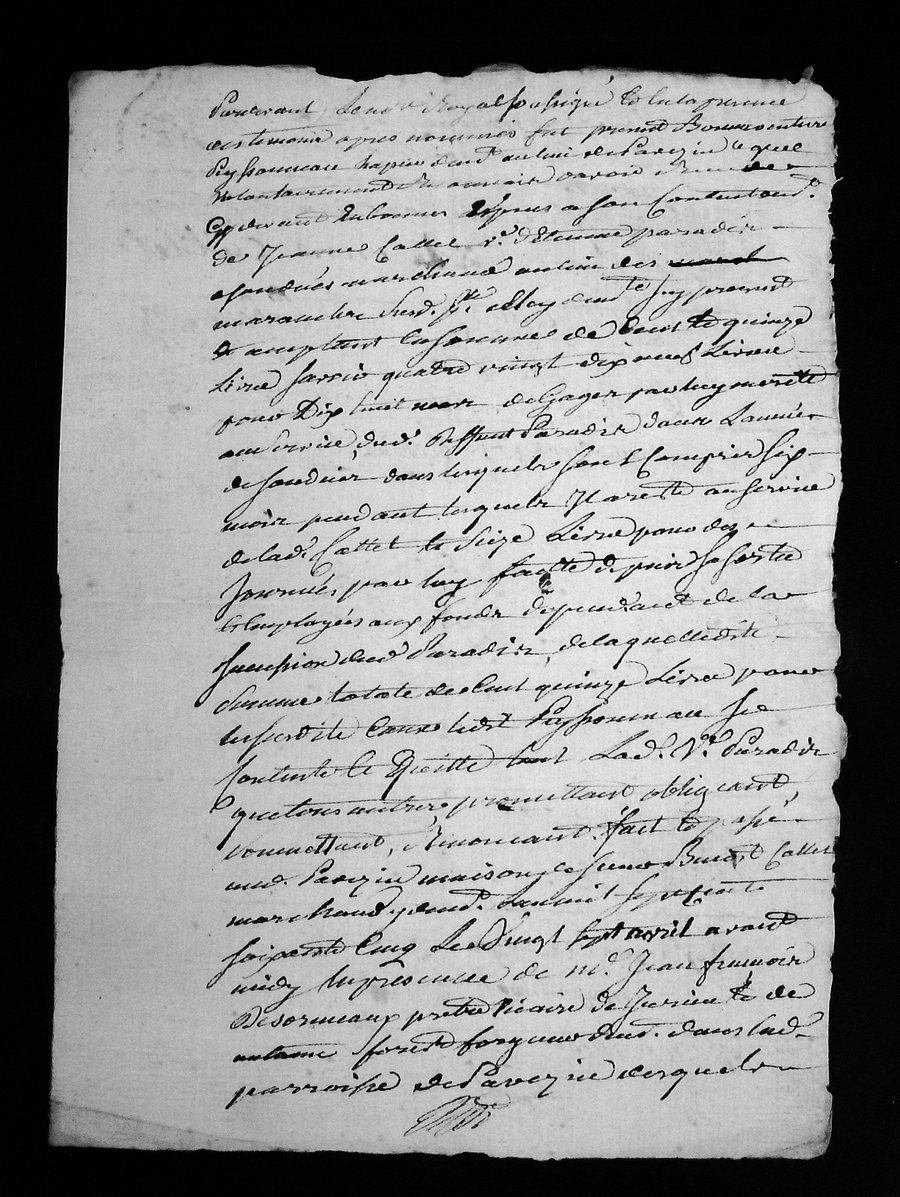 Pardevant Le nore Royal soussigné Et En la presence
des temoins apres nommés fut present Bonnaventure
Peyssonneau papier dud. au lieu de Pavezin Lequel
volontairement Reconnoit avoir Receu de
Cy devant En bonnes Especes a son Contentemt.
de Jeanne Cattet Ve. d'Etienne paradis
marchand au lieu des
Icy present
Et acceptant La somme de Cent Et quinze
Livres savoir quatre vingt dix neuf Livres
pour Dix huit mois de Gages par luy merités
au service dud. deffunt Paradis dans L'année
de son deces dans lesquels sont Compris six
mois pendant lesquels Il a resté au service
de lad. Cattet Et Seize Livres pour des
Journées par luy faitte depuis sa sortie
Et Employées aux fonds dépendant de la
succession dud. Paradis, de laquelle ditte
somme totale de Cent quinze Livres pour
les susdites Causes ledt. Peyssonneau se
Contente Et Quitte tant Lad. Ve. Paradis
que tous autres, promettant, obligeant,
soumettant, Renonçant. fait Et passé
aud. Pavezin maison de sieur Benoit Cattet
marchand y demt. L'an mil sept cent
soixante Cinq Le Vingt sept avril avant
midy En presence de me. Jean françois
Desormeaux pretre vicaire de Et de
antoine forest forgeur dud. dans lad.
parroisse de Pavezin desquels